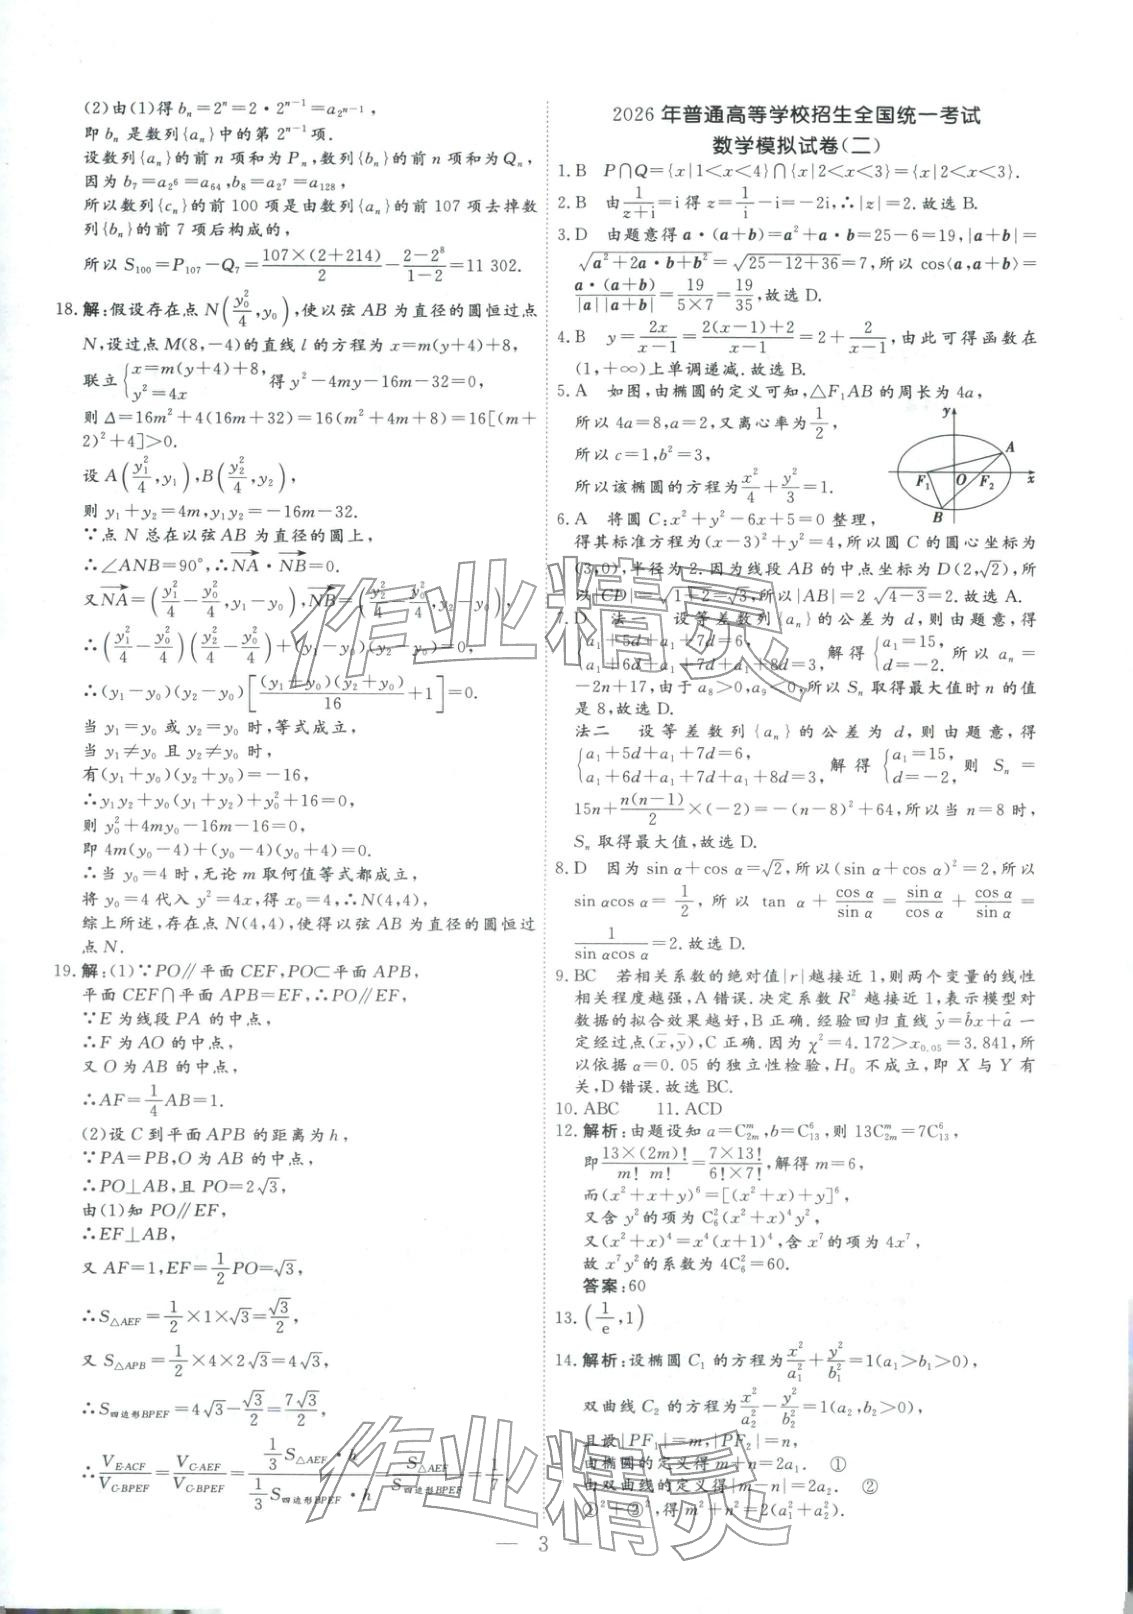 (2)由(1)得 bₙ=2ⁿ=2·2ⁿ⁻¹=a_{2ⁿ⁻¹},
即 bₙ 是数列{aₙ}中的第 2ⁿ⁻¹项.
设数列{aₙ}的前 n 项和为 Pₙ,数列{bₙ}的前 n 项和为Qₙ,
因为 b₇=a_{2⁶}=a₆₄,b₈=a_{2⁷}=a₁₂₈,
所以数列{cₙ}的前 100 项是由数列{aₙ}的前 107 项去掉数
列{bₙ}的前 7 项后构成的,
所以 S₁₀₀=P₁₀₇-Q₇=\frac{107×(2+214)}{2}-\frac{2-2⁸}{1-2}=11 302.
18.解:假设存在点 N(\frac{y₀²}{4},y₀),使以弦 AB 为直径的圆恒过点
N,设过点 M(8,-4)的直线 l 的方程为 x=m(y+4)+8,
联立{x=m(y+4)+8, y²=4x 得 y²-4my-16m-32=0,
则 Δ=16m²+4(16m+32)=16(m²+4m+8)=16[(m+
2)²+4]>0.
设 A(\frac{y₁²}{4},y₁),B(\frac{y₂²}{4},y₂),
则 y₁+y₂=4m,y₁y₂=-16m-32.
∵点 N 总在以弦 AB 为直径的圆上,
∴∠ANB=90°,∴\overrightarrow{NA}·\overrightarrow{NB}=0.
又\overrightarrow{NA}=(\frac{y₁²}{4}-\frac{y₀²}{4},y₁-y₀),\overrightarrow{NB}=(\frac{y₂²}{4}-\frac{y₀²}{4},y₂-y₀),
∴(\frac{y₁²}{4}-\frac{y₀²}{4})(\frac{y₂²}{4}-\frac{y₀²}{4})+(y₁-y₀)(y₂-y₀)=0,
∴(y₁-y₀)(y₂-y₀)[\frac{(y₁+y₀)(y₂+y₀)}{16}+1]=0.
当 y₁=y₀ 或 y₂=y₀ 时,等式成立,
当 y₁≠y₀ 且 y₂≠y₀ 时,
有(y₁+y₀)(y₂+y₀)=-16,
∴y₁y₂+y₀(y₁+y₂)+y₀²+16=0,
则 y₀²+4my₀-16m-16=0,
即 4m(y₀-4)+(y₀-4)(y₀+4)=0.
∴当 y₀=4 时,无论 m 取何值等式都成立,
将 y₀=4 代入 y²=4x,得 x₀=4,∴N(4,4),
综上所述,存在点 N(4,4),使得以弦 AB 为直径的圆恒过
点 N.
19.解:(1)∵PO∥平面 CEF,PO⊂平面 APB,
平面 CEF∩平面 APB=EF,∴PO∥EF,
∵E 为线段 PA 的中点,
∴F 为 AO 的中点,
又 O 为 AB 的中点,
∴AF=\frac{1}{4}AB=1.
(2)设 C 到平面 APB 的距离为 h,
∵PA=PB,O 为 AB 的中点,
∴PO⊥AB,且 PO=2√3,
由(1)知 PO∥EF,
∴EF⊥AB,
又 AF=1,EF=\frac{1}{2}PO=√3,
∴S_{△AEF}=\frac{1}{2}×1×√3=\frac{√3}{2},
又 S_{△APB}=\frac{1}{2}×4×2√3=4√3,
∴S_{四边形BPEF}=4√3-\frac{√3}{2}=\frac{7√3}{2},
∴\frac{V_{E-ACF}}{V_{C-BPEF}}=\frac{V_{C-AEF}}{V_{C-BPEF}}=\frac{\frac{1}{3}S_{△AEF}·h}{\frac{1}{3}S_{四边形BPEF}·h}=\frac{S_{△AEF}}{S_{四边形BPEF}}=\frac{1}{7}.
2026 年普通高等学校招生全国统一考试
数学模拟试卷(二)
1.B P∩Q={x|1<x<4}∩{x|2<x<3}={x|2<x<3}.
2.B 由\frac{1}{z+i}=i得 z=\frac{1}{i}-i=-2i,∴|z|=2.故选 B.
3.D 由题意得 a·(a+b)=a²+a·b=25-6=19,|a+b|=
\sqrt{a²+2a·b+b²}=\sqrt{25-12+36}=7,所以 cos⟨a,a+b⟩=
\frac{a·(a+b)}{|a||a+b|}=\frac{19}{5×7}=\frac{19}{35},故选 D.
4.B y=\frac{2x}{x-1}=\frac{2(x-1)+2}{x-1}=2+\frac{2}{x-1},由此可得函数在
(1,+∞)上单调递减.故选 B.
5.A 如图,由椭圆的定义可知,△F₁AB 的周长为 4a,
所以 4a=8,a=2,又离心率为\frac{1}{2},
所以 c=1,b²=3,
所以该椭圆的方程为\frac{x²}{4}+\frac{y²}{3}=1.
y
A
F₁ O F₂ x
B
6.A 将圆 C:x²+y²-6x+5=0 整理,
得其标准方程为(x-3)²+y²=4,所以圆 C 的圆心坐标为
(3,0),半径为 2.因为线段 AB 的中点坐标为 D(2,√2),所
以|CD|=\sqrt{1+2}=√3,所以|AB|=2\sqrt{4-3}=2.故选 A.
7.D 法一 设等差数列{aₙ}的公差为 d,则由题意,得
{a₁+5d+a₁+7d=6, a₁+6d+a₁+7d+a₁+8d=3, 解得{a₁=15, d=-2. 所以 aₙ=
-2n+17,由于 a₈>0,a₉<0,所以 Sₙ 取得最大值时 n 的值
是 8,故选 D.
法二 设等差数列{aₙ}的公差为 d,则由题意,得
{a₁+5d+a₁+7d=6, a₁+6d+a₁+7d+a₁+8d=3, 解得{a₁=15, d=-2, 则 Sₙ=
15n+\frac{n(n-1)}{2}×(-2)=-(n-8)²+64,所以当 n=8 时,
Sₙ 取得最大值,故选 D.
8.D 因为 sin α+cos α=√2,所以(sin α+cos α)²=2,所以
sin αcos α=\frac{1}{2},所以 tan α+\frac{cos α}{sin α}=\frac{sin α}{cos α}+\frac{cos α}{sin α}=
\frac{1}{sin αcos α}=2.故选 D.
9.BC 若相关系数的绝对值|r|越接近 1,则两个变量的线性
相关程度越强,A 错误.决定系数 R² 越接近 1,表示模型对
数据的拟合效果越好,B 正确.经验回归直线 ŷ=b̂x+â 一
定经过点(x̄,ȳ),C 正确.因为 χ²=4.172>x₀.₀₅=3.841,所
以依据 α=0.05 的独立性检验,H₀ 不成立,即 X 与 Y 有
关,D 错误.故选 BC.
10.ABC 11.ACD
12.解析:由题设知 a=C_{2m}^{m},b=C_{13}^{6},则 13C_{2m}^{m}=7C_{13}^{6},
即\frac{13×(2m)!}{m! m!}=\frac{7×13!}{6!×7!},解得 m=6,
而(x²+x+y)⁶=[(x²+x)+y]⁶,
又含 y²的项为 C₆²(x²+x)⁴y²,
又(x²+x)⁴=x⁴(x+1)⁴,含 x⁷的项为 4x⁷,
故 x⁷y²的系数为 4C₆²=60.
答案:60
13.(\frac{1}{e},1)
14.解析:设椭圆 C₁ 的方程为\frac{x²}{a₁²}+\frac{y²}{b₁²}=1(a₁>b₁>0),
双曲线 C₂ 的方程为\frac{x²}{a₂²}-\frac{y²}{b₂²}=1(a₂,b₂>0),
且设|PF₁|=m,|PF₂|=n,
由椭圆的定义得 m+n=2a₁. ①
由双曲线的定义得|m-n|=2a₂. ②
①²+②²,得 m²+n²=2(a₁²+a₂²).
— 3 —
作业精灵
作业精灵